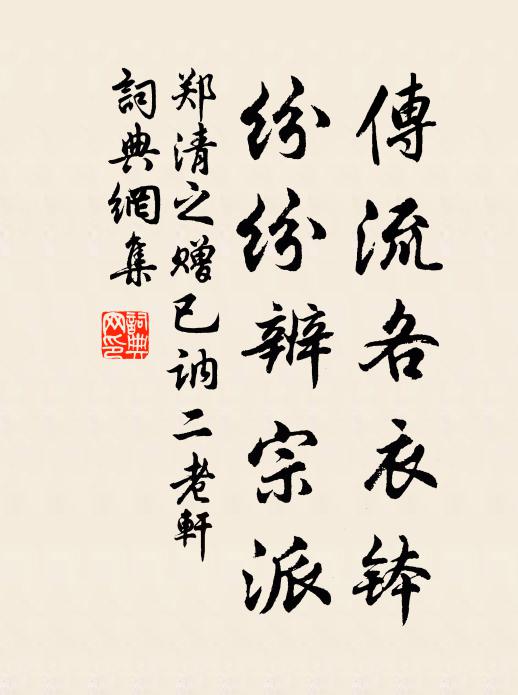 傳流各衣鉢
紛紛辨宗派
郑清之赠已訥二老軒
詞典網集
詞典网印